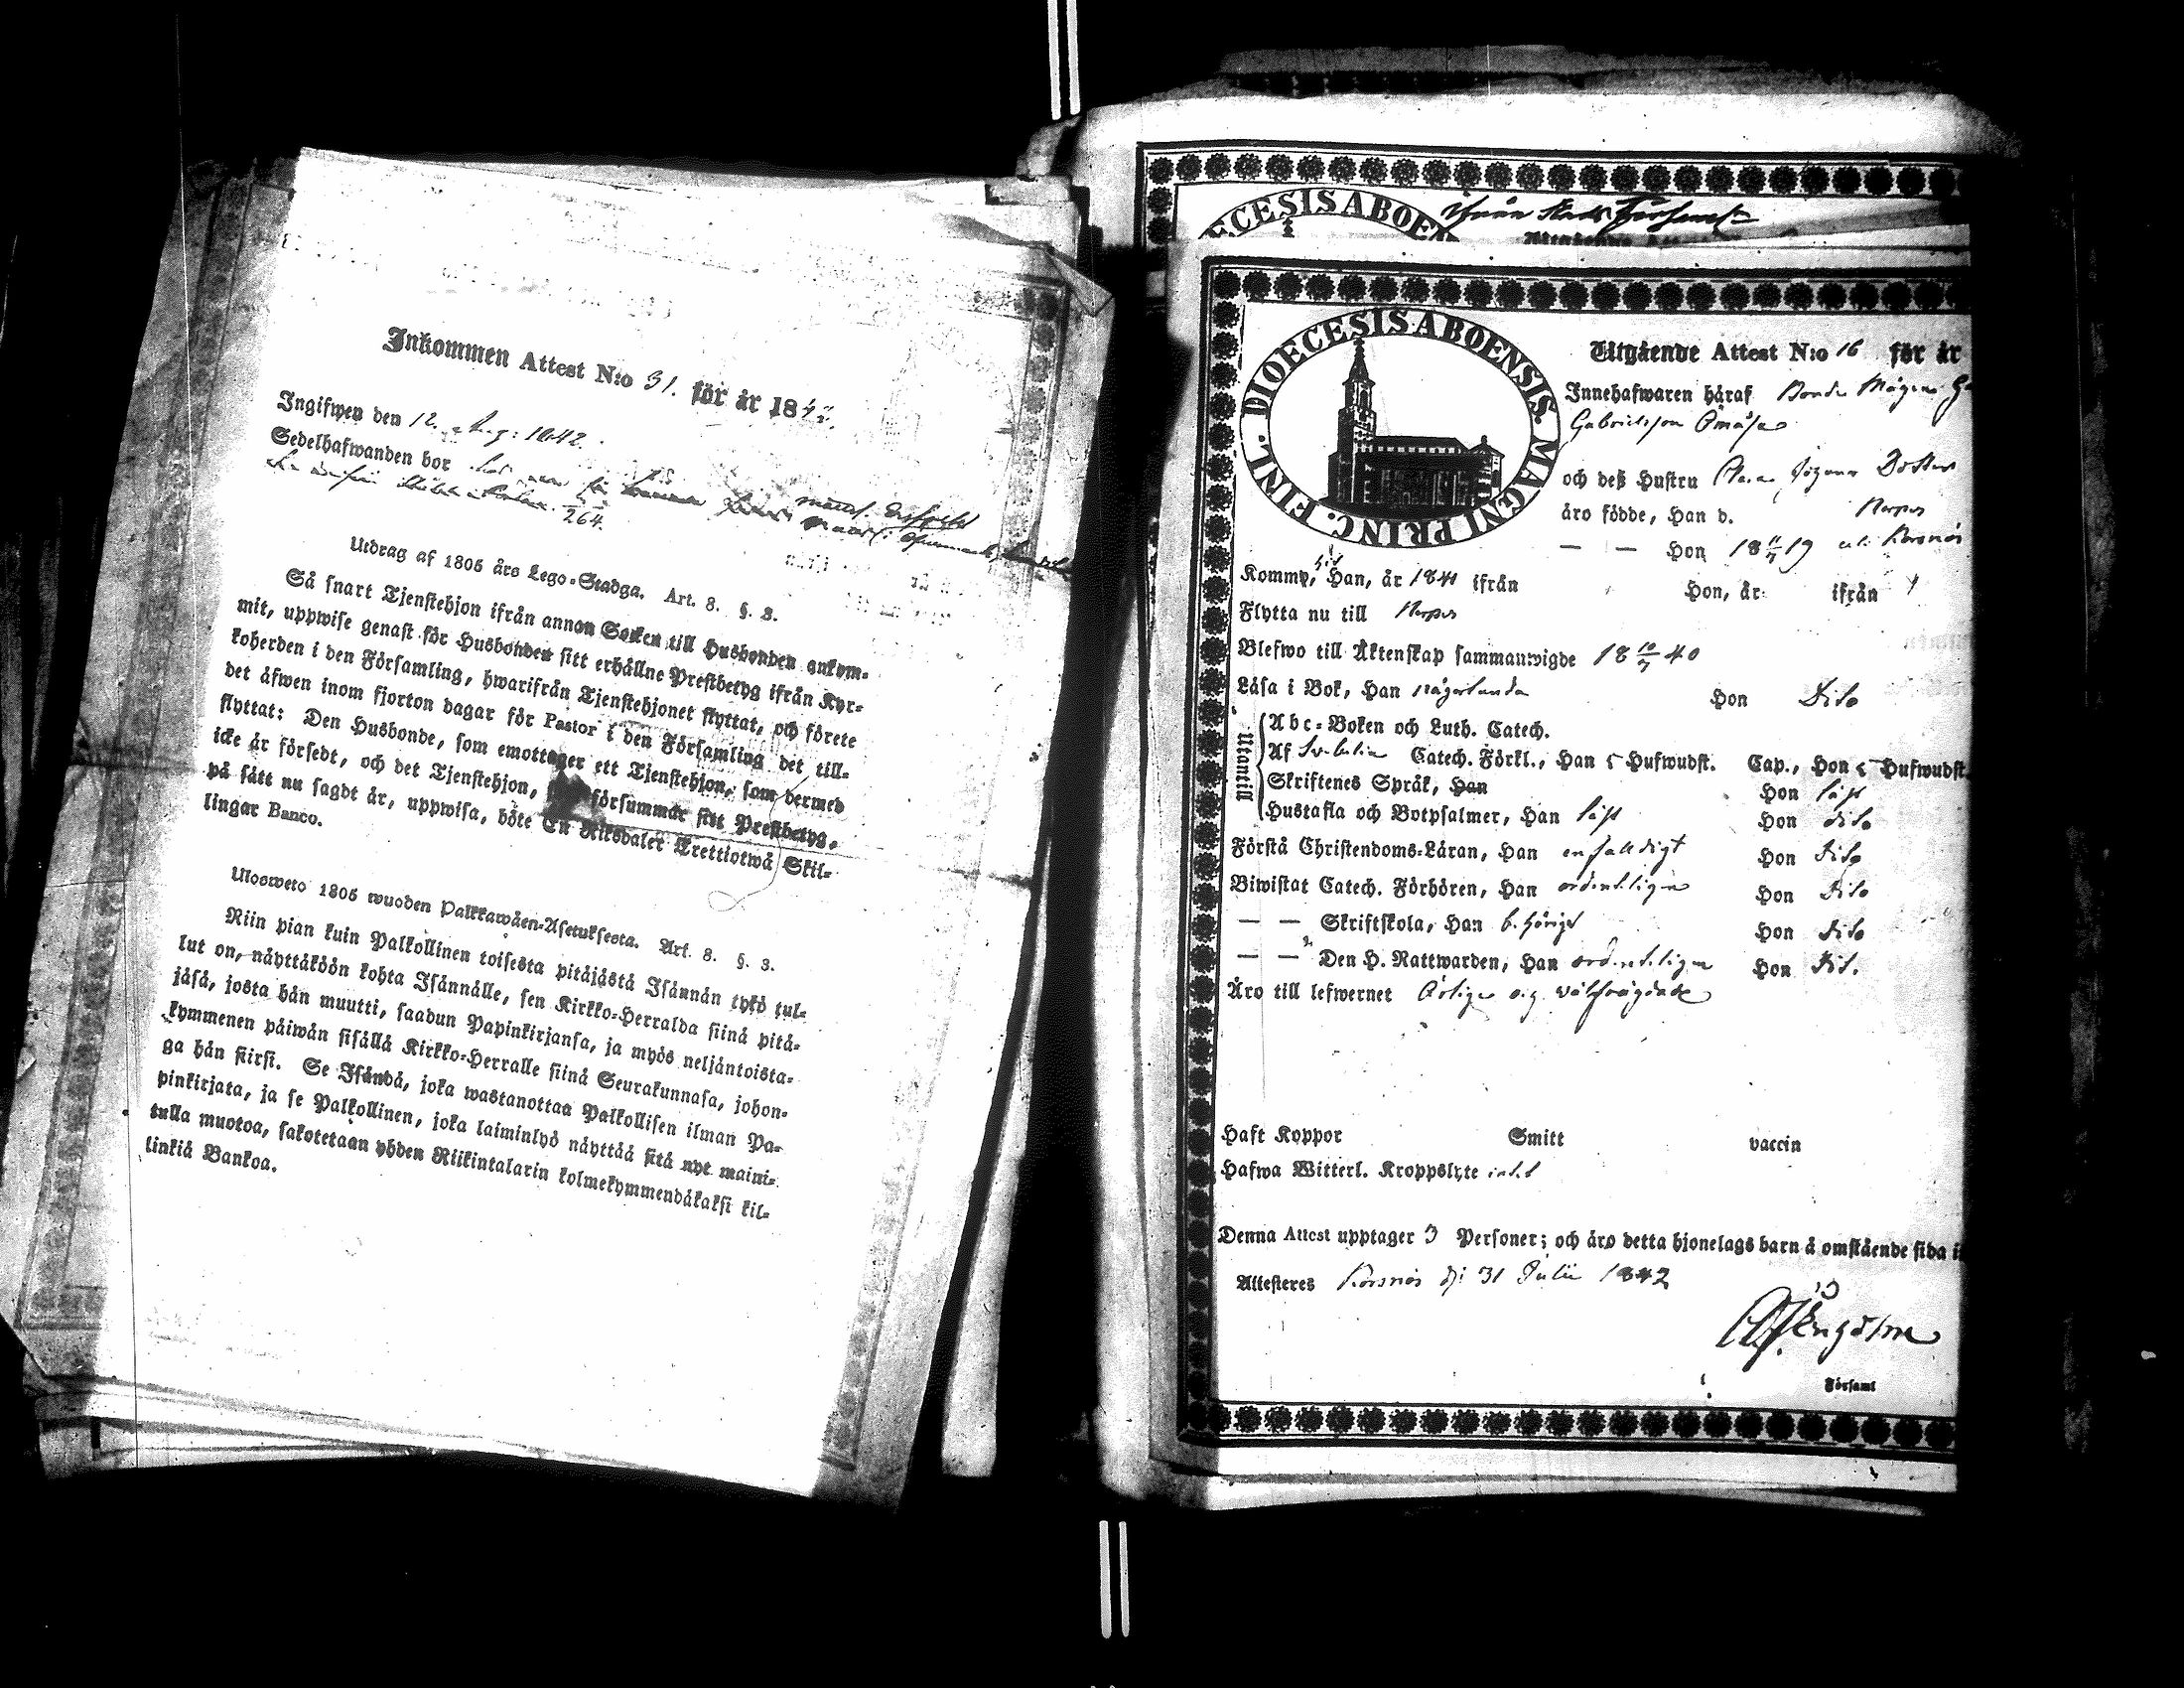 Inkommen Attest N:o 31. för år 1842.
Ingifwen den 12. Aug: 1842.
Sedelhafwanden bor
264.
Utdrag af 1805 års Lego-Stadga. Art. 8. §. 3.
Så snart Tjenstehjon ifrån annan Socken till Husbonden ankym-
mit, uppwise genast för Husbonden sitt erhållne Prestbetyg ifrån Kyr-
koherden i den Församling, hwarifrån Tjenstehjonet flyttat, och förete
det äfwen inom fjorton dagar för Pastor i den Församling det till-
flyttat: Den Husbonde, som emottager ett Tjenstehjon, som dermed
icke är försedt, och det Tjenstehjon, försummar sitt Prestbetyg,
på sätt nu sagdt är, uppwisa, böte En Riksdaler Trettiotwå Skil-
lingar Banco.
Ulosweto 1805 wuoden Palkkawäen-Asetuksesta. Art. 8. §. 3.
Niin pian kuin Palkollinen toisesta pitäjästä Isännän tykö tul-
lut on, näyttäköön kohta Isännälle, sen Kirkko-Herralda siinä pitä-
jäsä, josta hän muutti, saadun Papinkirjansa, ja myös neljäntoista-
kymmenen päiwän sisällä Kirkko-Herralle siinä Seurakunnasa, johon-
ga hän siirsi. Se Isändä, joka wastanottaa Palkollisen ilman Pa-
pinkirjata, ja se Palkollinen, joka laiminlyö näyttää sitä nyt maini-
tulla muotoa, sakotetaan yhden Riikintalarin kolmekymmendäkaksi kil-
linkiä Bankoa.
ECESIS ABOEN
DIOECESIS ABOENSIS. MAGNI PRINC. FINL.
Utgående Attest N:o 16 för år
Innehafwaren häraf Bonden Mågen
Gabrielsson
och deß Hustru Dotter
äro födde, Han d. Korpo
— — Hon 18 19 Korsnäs
Kommo, hit Han, år 1841 ifrån Hon, år ifrån
Flytta nu till Korpo
Blefwo till Äktenskap sammanwigde 18 40
Läsa i Bok, Han någorlunda Hon Dito
Utantill
Abc-Boken och Luth. Catech.
Af Svebelii Catech. Förkl., Han 5 Hufwudst. Cap., Hon 5 Hufwudst.
Skriftenes Språk, Han Hon läst
Hustafla och Botpsalmer, Han läst Hon dito
Förstå Christendoms-Läran, Han enfaldigt Hon Dito
Biwistat Catech. Förhören, Han ordentligen Hon Dito
— — Skriftskola, Han behörigt Hon Dito
— — Den H. Nattwarden, Han ordentligen Hon Dit.
Äro till lefwernet ärlige och välfrägdade
Haft Koppor Smitt vaccin
Hafwa Witterl. Kroppslyte intet
Denna Attest upptager 3 Personer; och äro detta hjonelags barn å omstående sida
Attesteres Korsnäs d: 31 Julii 1842
Församl